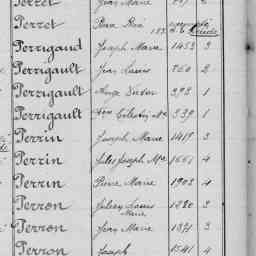 Perret Jean Marie
Perret Pierre
Perrigaud Joseph Marie 1453 3
Perrigault Jean Louis 860 2
Perrigault Ange Victor 393 1
Perrigault 339 1
Perrin Joseph Marie 1419 3
Perrin Jules Joseph Mie 1661 4
Perrin Pierre Marie 1903 4
Perron Julien Louis Marie 1220 3
Perron Jean Marie 1271 3
Perron Joseph 1541 4